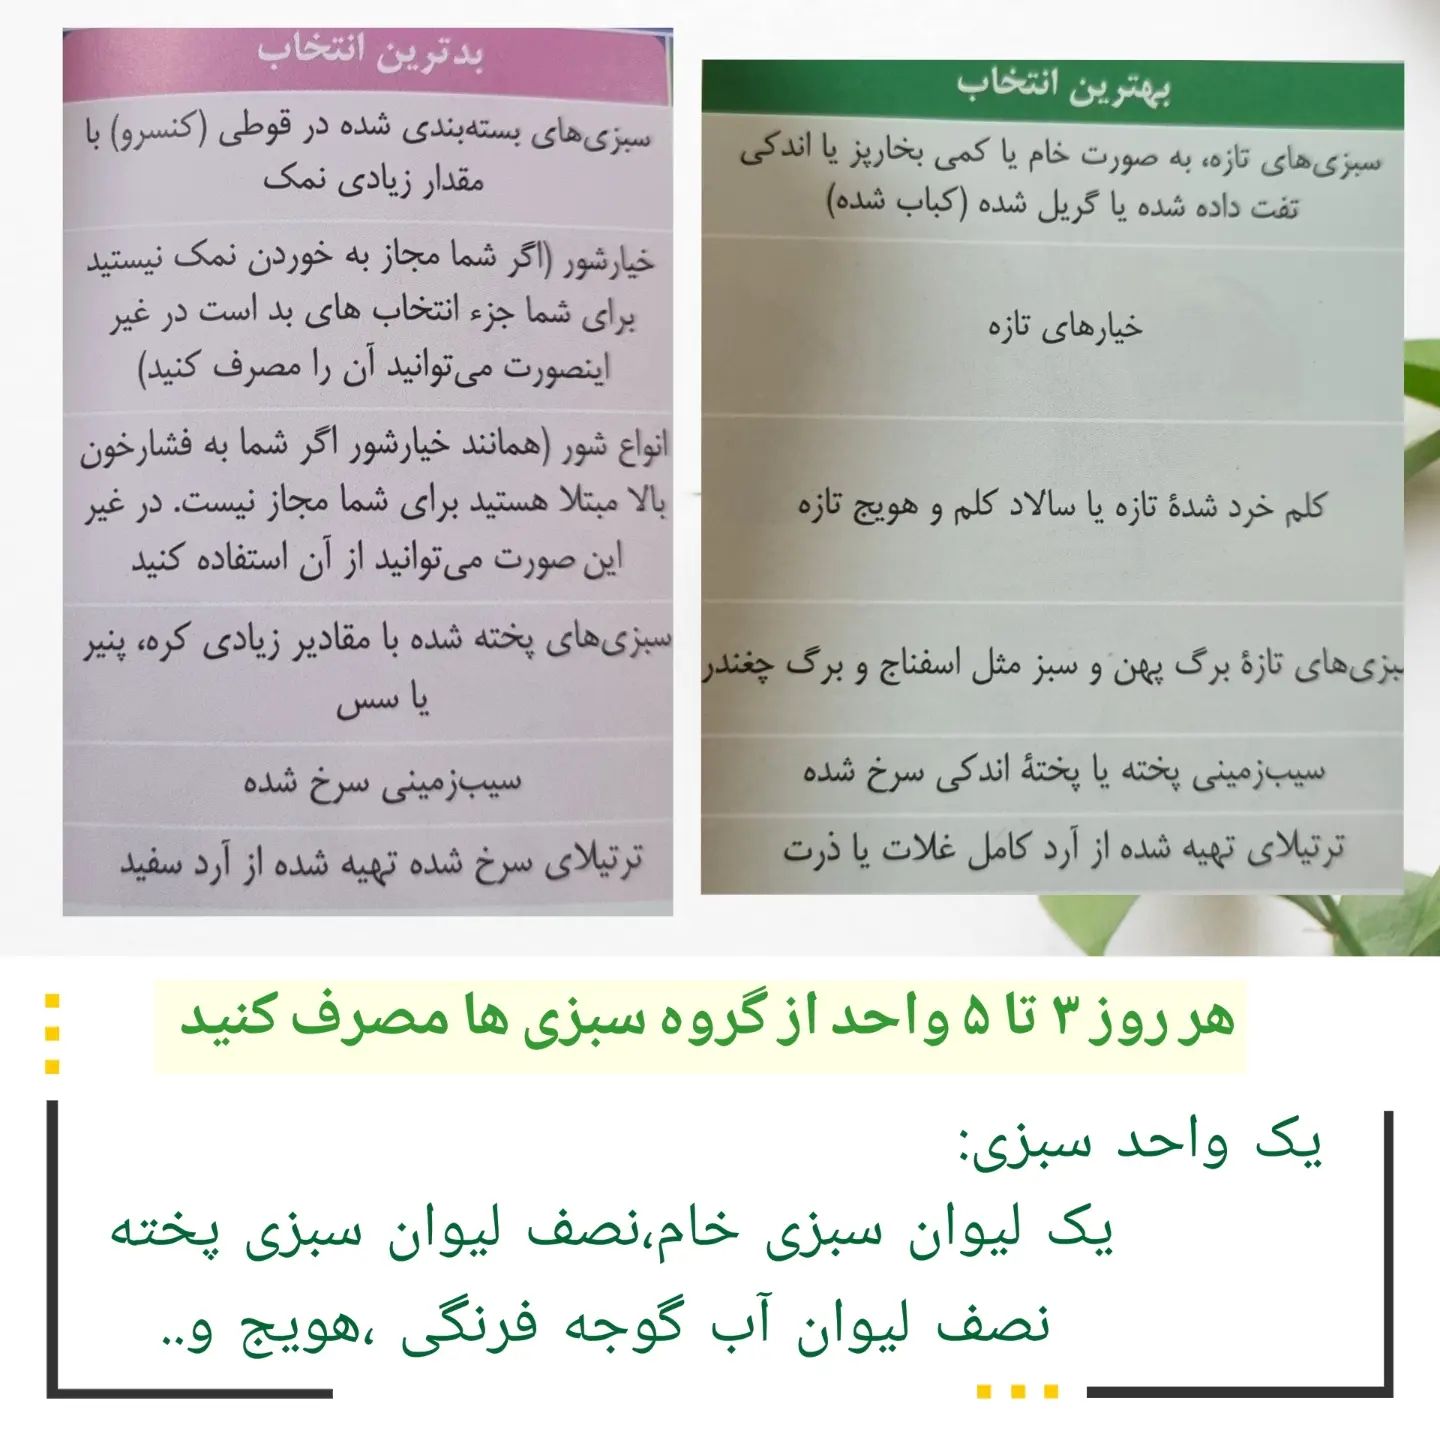 بهترین انتخاب
سبزی‌های تازه، به صورت خام یا کمی بخارپز یا اندکی
تفت داده شده یا گریل شده (کباب شده)
خیارهای تازه
کلم خرد شدهٔ تازه یا سالاد کلم و هویج تازه
سبزی‌های تازهٔ برگ پهن و سبز مثل اسفناج و برگ چغندر
سیب‌زمینی پخته یا پختهٔ اندکی سرخ شده
ترتیلای تهیه شده از آرد کامل غلات یا ذرت
بدترین انتخاب
سبزی‌های بسته‌بندی شده در قوطی (کنسرو) با
مقدار زیادی نمک
خیارشور (اگر شما مجاز به خوردن نمک نیستید
برای شما جزء انتخاب های بد است در غیر
اینصورت می‌توانید آن را مصرف کنید)
انواع شور (همانند خیارشور اگر شما به فشارخون
بالا مبتلا هستید برای شما مجاز نیست. در غیر
این صورت می‌توانید از آن استفاده کنید
سبزی‌های پخته شده با مقادیر زیادی کره، پنیر
یا سس
سیب‌زمینی سرخ شده
ترتیلای سرخ شده تهیه شده از آرد سفید
هر روز ۳ تا ۵ واحد از گروه سبزی ها مصرف کنید
یک واحد سبزی:
یک لیوان سبزی خام،نصف لیوان سبزی پخته
نصف لیوان آب گوجه فرنگی ،هویج و..